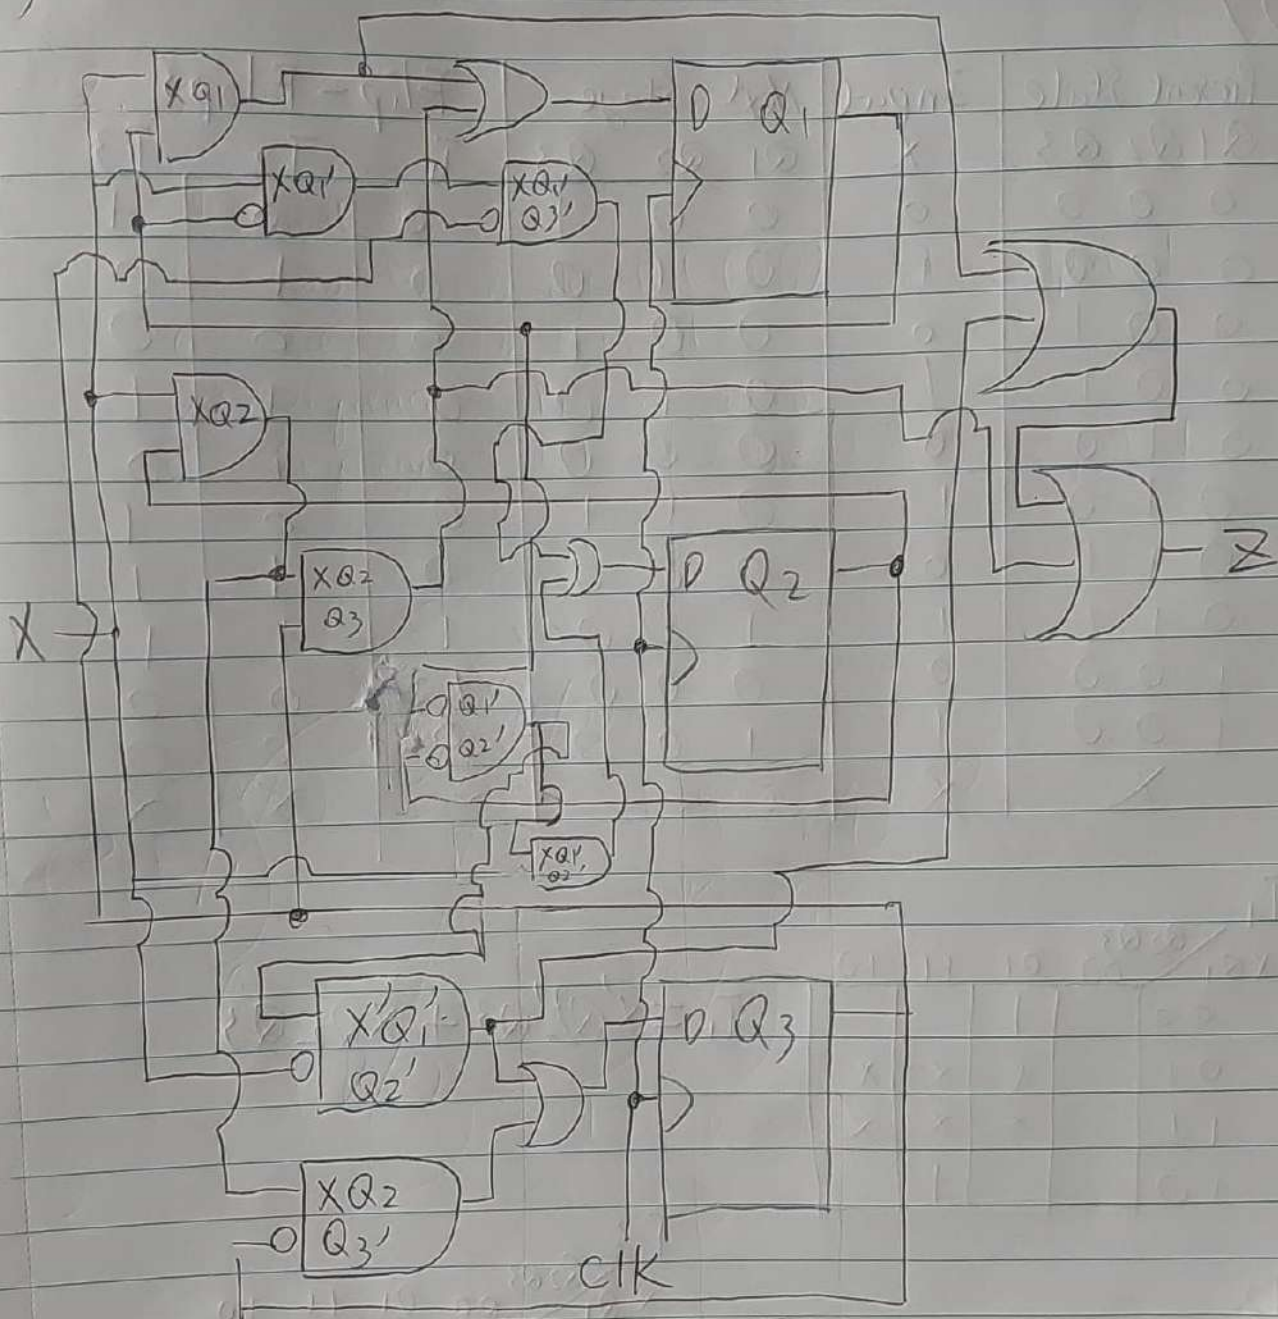 XQ1
XQ1'
XQ1'
Q3'
D Q1
XQ2
XQ2
Q3
D Q2
Z
X
Q1'
Q2'
XQ1'
X'Q1'
Q2'
D Q3
XQ2
Q3'
ClK